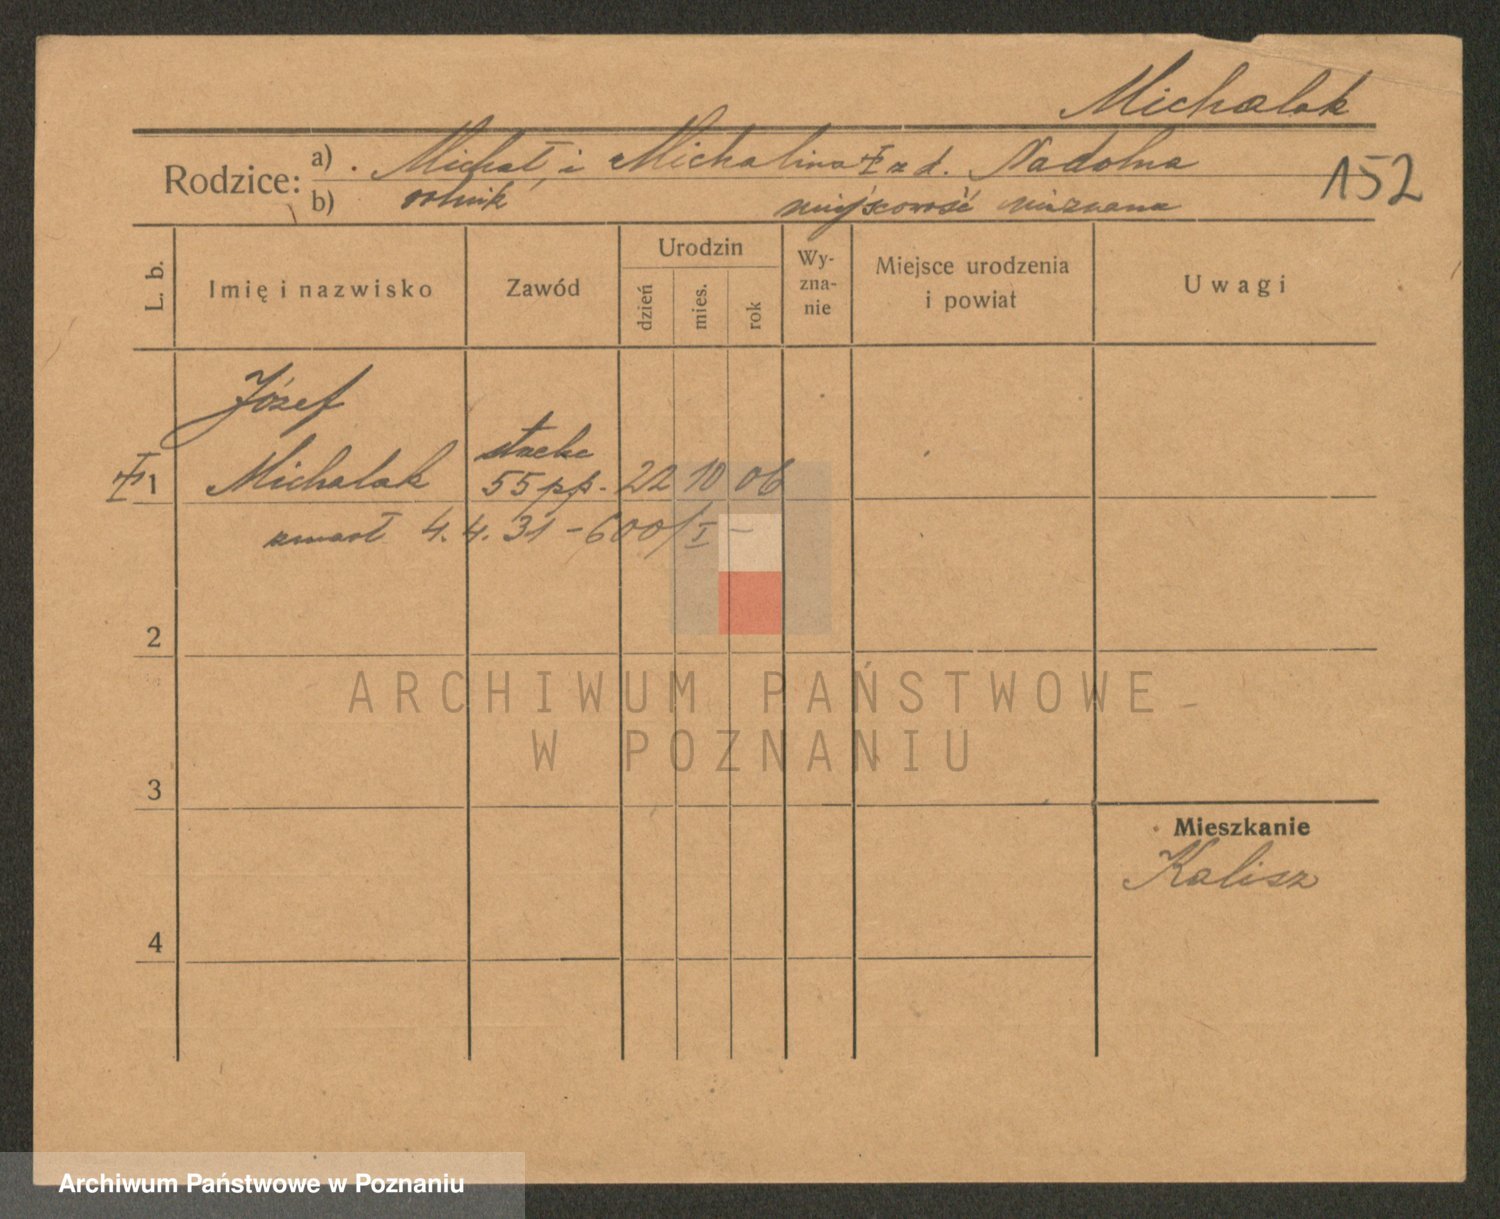 Michalak
Rodzice: a) Michał i Michalina z d. Nadolna
b) rolnik miejscowość nieznana
152
L. b. Imię i nazwisko Zawód Urodzin dzień mies. rok Wy-zna-nie Miejsce urodzenia i powiat Uwagi
Józef
1 Michalak 55 pp. 22 10 06
zmarł 4. 4. 31 – 600/I –
2
ARCHIWUM PAŃSTWOWE
W POZNANIU
3
Mieszkanie
Kalisz
4
Archiwum Państwowe w Poznaniu